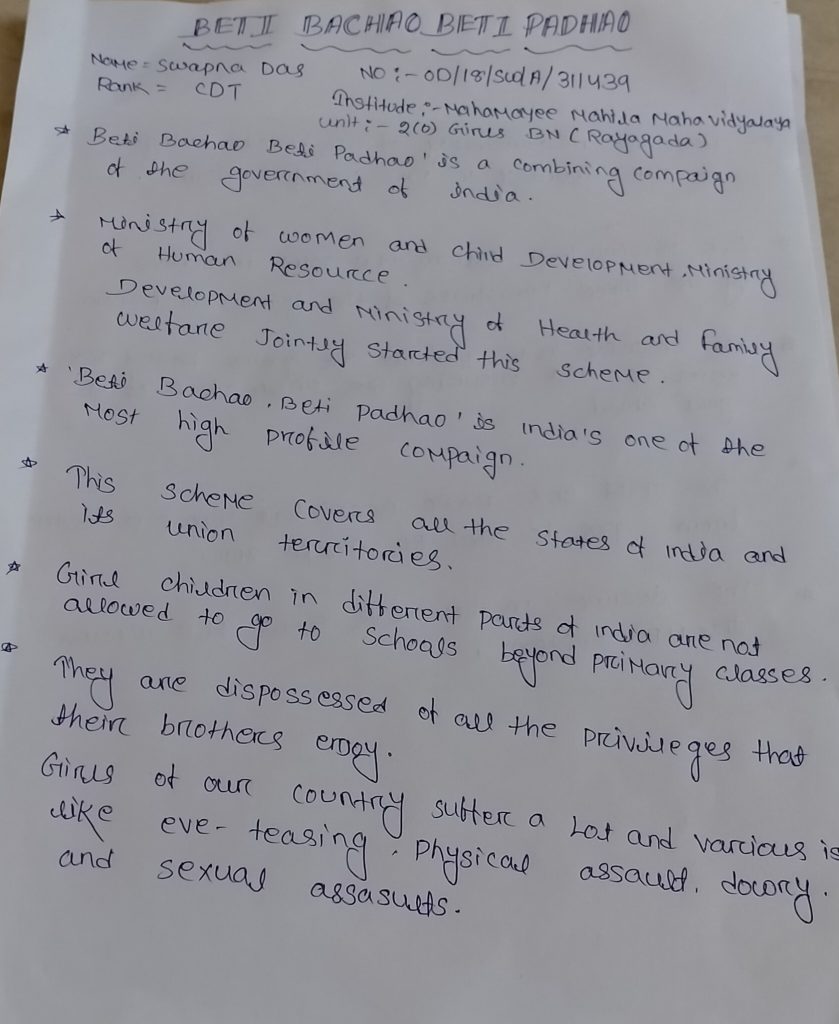 BETI BACHAO BETI PADHAO
Name = Swapna Das NO :- OD/18/SWDA/311439
Rank = CDT
Institude :- Mahamayee Mahila Mahavidyalaya
unit :- 2(O) Girls BN (Rayagada)
* Beti Bachao Beti Padhao' is a combining compaign
of the government of india.
→ Ministry of women and child Development, Ministry
of Human Resource.
Development and Ministry of Health and family
welfare Jointly started this scheme.
* 'Beti Bachao, Beti padhao' is india's one of the
Most high profile compaign.
* This scheme covers all the states of india and
its union territories.
* Girl children in different parts of india are not
allowed to go to schools beyond primary classes.
* They are dispossessed of all the privileges that
their brothers enogy.
Girls of our country suffer a lot and various is
like eve-teasing, physical assault, dowory.
and sexual assasults.